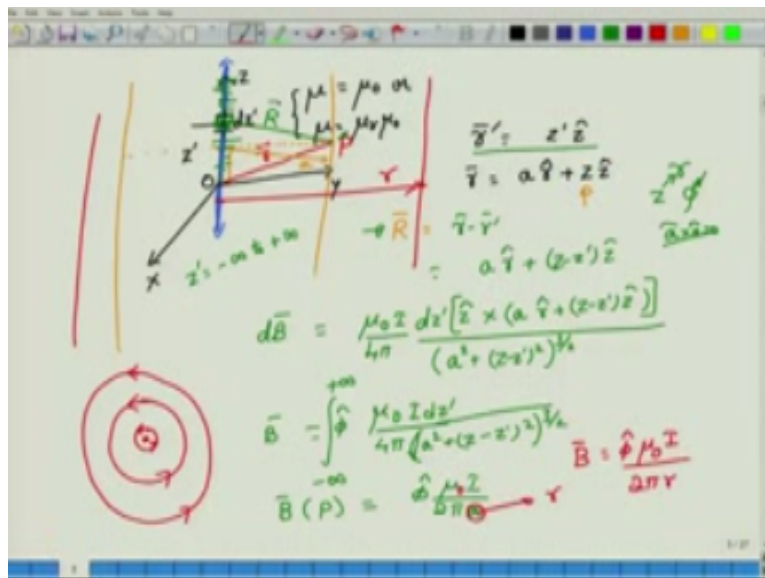 z
μ = μ₀ or
dz' R̄
μ = μᵣμ₀
z'
P
r̄
O
y
r
x
z' = -∞ to +∞
r̄' = z' ẑ
r̄ = a r̂ + z ẑ
P
→ R̄ = r̄ - r̄'
= a r̂ + (z-z') ẑ
dB̄ = μ₀I/4π dz' [ẑ × (a r̂ + (z-z') ẑ)] / (a² + (z-z')²)^3/2
B̄ = ∫_{-∞}^{+∞} φ̂ μ₀ I dz' / 4π (a² + (z-z')²)^3/2
B̄ (P) = φ̂ μ₀ I / 2π → r
B̄ = φ̂ μ₀ I / 2πr